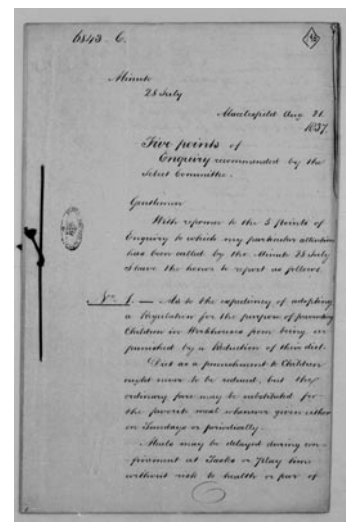 6843. C.
Minute
28 July
Macclesfield Aug. 21.
1837.
Five points of
Enquiry recommended by the
Select Committee.
Gentlemen
With reference to the 5 Points of
Enquiry to which my particular attention
has been called by the Minute 28 July
I have the honor to report as follows.
No. 1. — As to the expediency of adopting
a Regulation for the purpose of preventing
Children in Workhouses from being
punished by a Reduction of their diet.
Diet as a punishment to Children
ought never to be reduced, but the
ordinary fare may be substituted for
the favorite meal whenever given either
on Sundays or periodically.
Meals may be delayed during con-
finement at Tasks or Play time
without risk to health or fear of